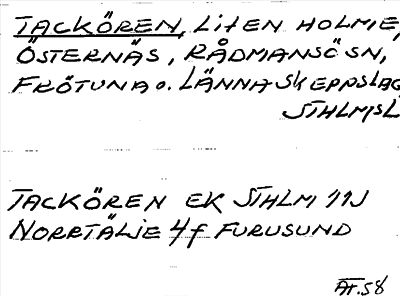 TACKÖREN, LITEN HOLME,
ÖSTERNÄS, RÅDMANSÖ SN,
FRÖTUNA o. LÄNNA SKEPPSLAG
STHLMSL
TACKÖREN EK STHLM 11J
NORRTÄLJE 4f FURUSUND
ÄT.58